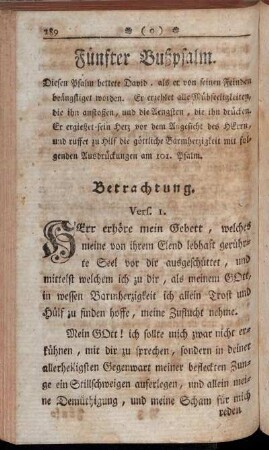 289 ❀ (o) ❀
Fünfter Bußpsalm.
Diesen Psalm bettete David, als er von seinen Feinden
beängstiget worden. Er erzehlet alle Mühseeligkeiten,
die ihn anstossen, und die Aengsten, die ihn drücken.
Er ergießet sein Herz vor dem Angesicht des HErrn,
und ruffet zu Hilf die göttliche Barmherzigkeit mit fol-
genden Ausdrückungen am 101. Psalm.
Betrachtung.
Vers. 1.
HErr erhöre mein Gebett, welches
meine von ihrem Elend lebhaft gerühr-
te Seel vor dir ausgeschüttet, und
mittelst welchem ich zu dir, als meinem GOtt,
in wessen Barmherzigkeit ich allein Trost und
Hülf zu finden hoffe, meine Zuflucht nehme.
Mein GOtt! ich sollte mich zwar nicht er-
kühnen, mit dir zu sprechen, sondern in deiner
allerheiligsten Gegenwart meiner befleckten Zun-
ge ein Stillschweigen auferlegen, und allein mei-
ne Demüthigung, und meine Scham für mich
reden